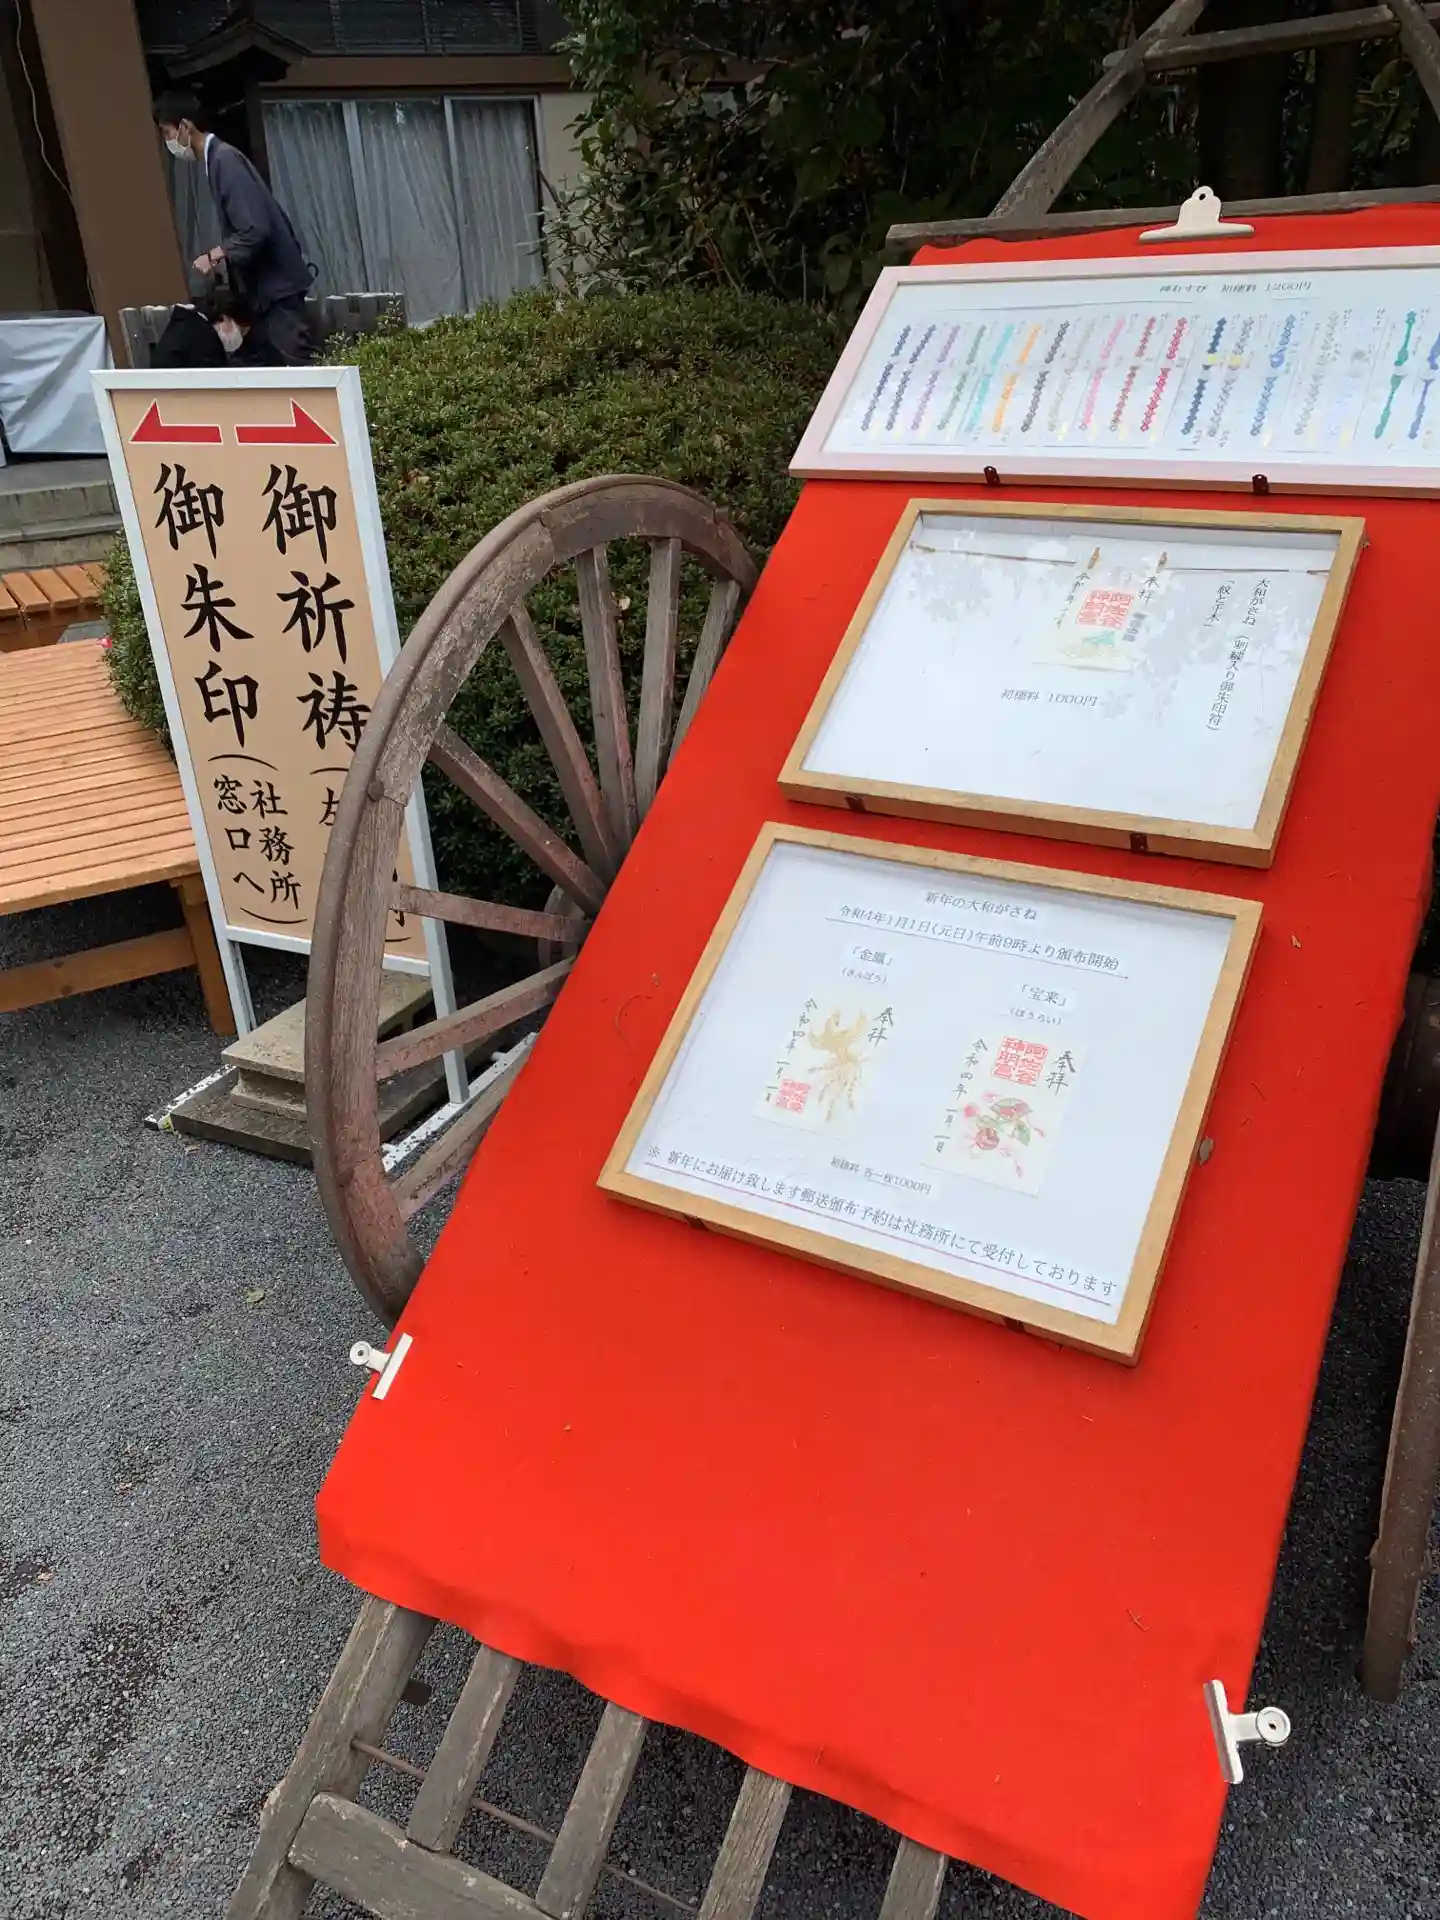 御祈祷
御朱印
(社務所
窓口へ)
神むすび 初穂料 1200円
大和がさね (刺繍入り御朱印符)
奉拝
阿佐谷
神明宮
初穂料 1000円
新年の大和がさね
令和4年1月1日(元日)午前9時より頒布開始
「金鳳」
(きんぽう)
奉拝
令和四年 一月一日
「宝来」
(ほうらい)
奉拝
阿佐谷
神明宮
令和四年 一月一日
初穂料 各一枚1000円
※ 新年にお届け致します郵送頒布予約は社務所にて受付しております